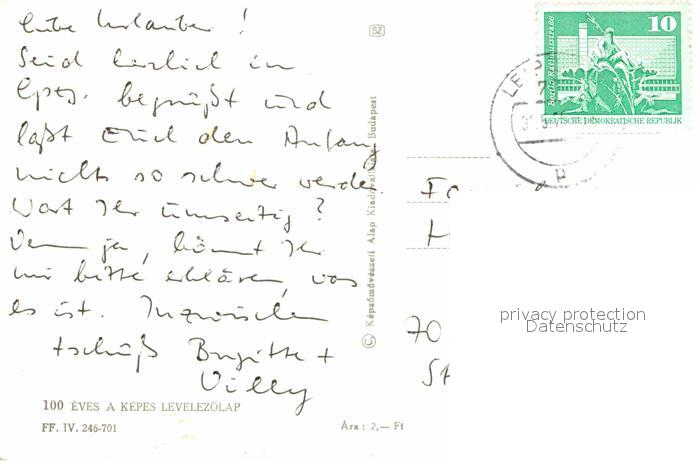 Liebe Urlauber!
Seid herzlich in
Lpzg. begrüßt und
laßt Euch den Anfang
nichts so schwer werden.
Wart Ihr umseitig?
Wenn ja, könnt Ihr
mir bitte erklären, was
es ist. Inzwischen
tschüß Brigitte +
Willy
100 ÉVES A KÉPES LEVELEZŐLAP
FF. IV. 246-701
Ára: 2,— Ft
SZ
© Képzőművészeti Alap Kiadóvállalata, Budapest
10
Berlin Rathausstraße
DEUTSCHE DEMOKRATISCHE REPUBLIK
LEIP
70
St
privacy protection
Datenschutz